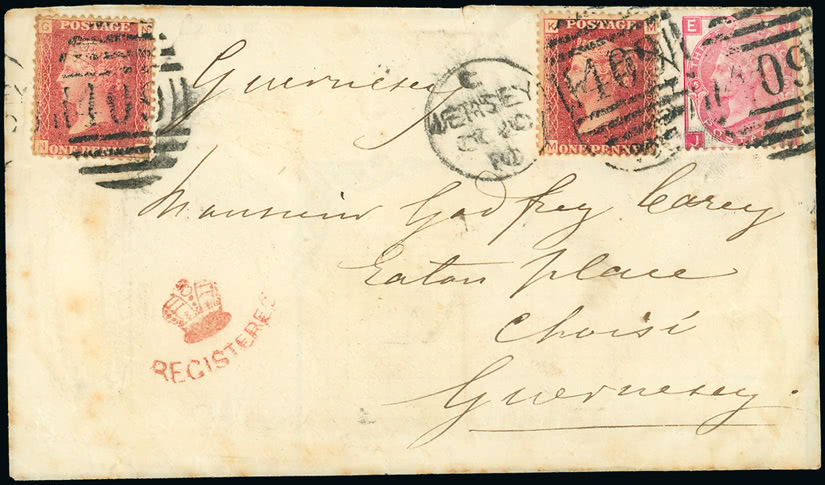 G N
POSTAGE
N G
ONE PENNY
409
Guernsey
C
JERSEY
K M
POSTAGE
M K
ONE PENNY
409
E
J
409
Monsieur Godfrey Carey
Eaton place
Choisi
Guernesey.
REGISTERED